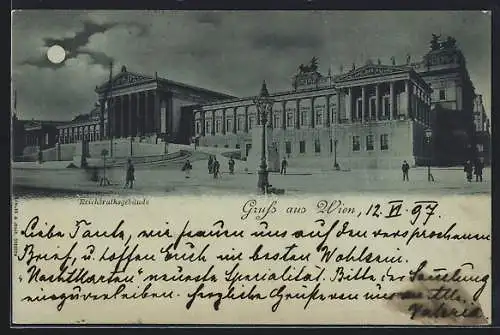 Reichsrathsgebäude
Gruss aus Wien, 12. VI 97.
Liebe Tante, wir freuen uns auf den versprochenen
Brief, u. hoffen Euch im besten Wohlsein.
"Nachtkarten" neueste Spezialität. Bitte der Sammlung
einzuverleiben. Herzliche Grüsse von uns alle,
Valerie